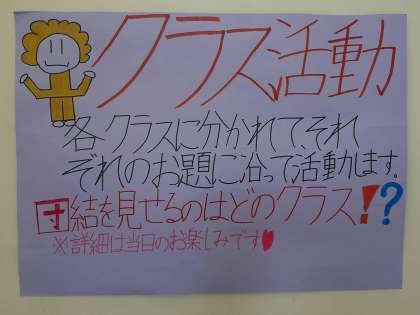 クラス活動
各クラスに分かれて、それ
ぞれのお題に沿って活動します。
団結を見せるのはどのクラス!?
※詳細は当日のお楽しみです♥